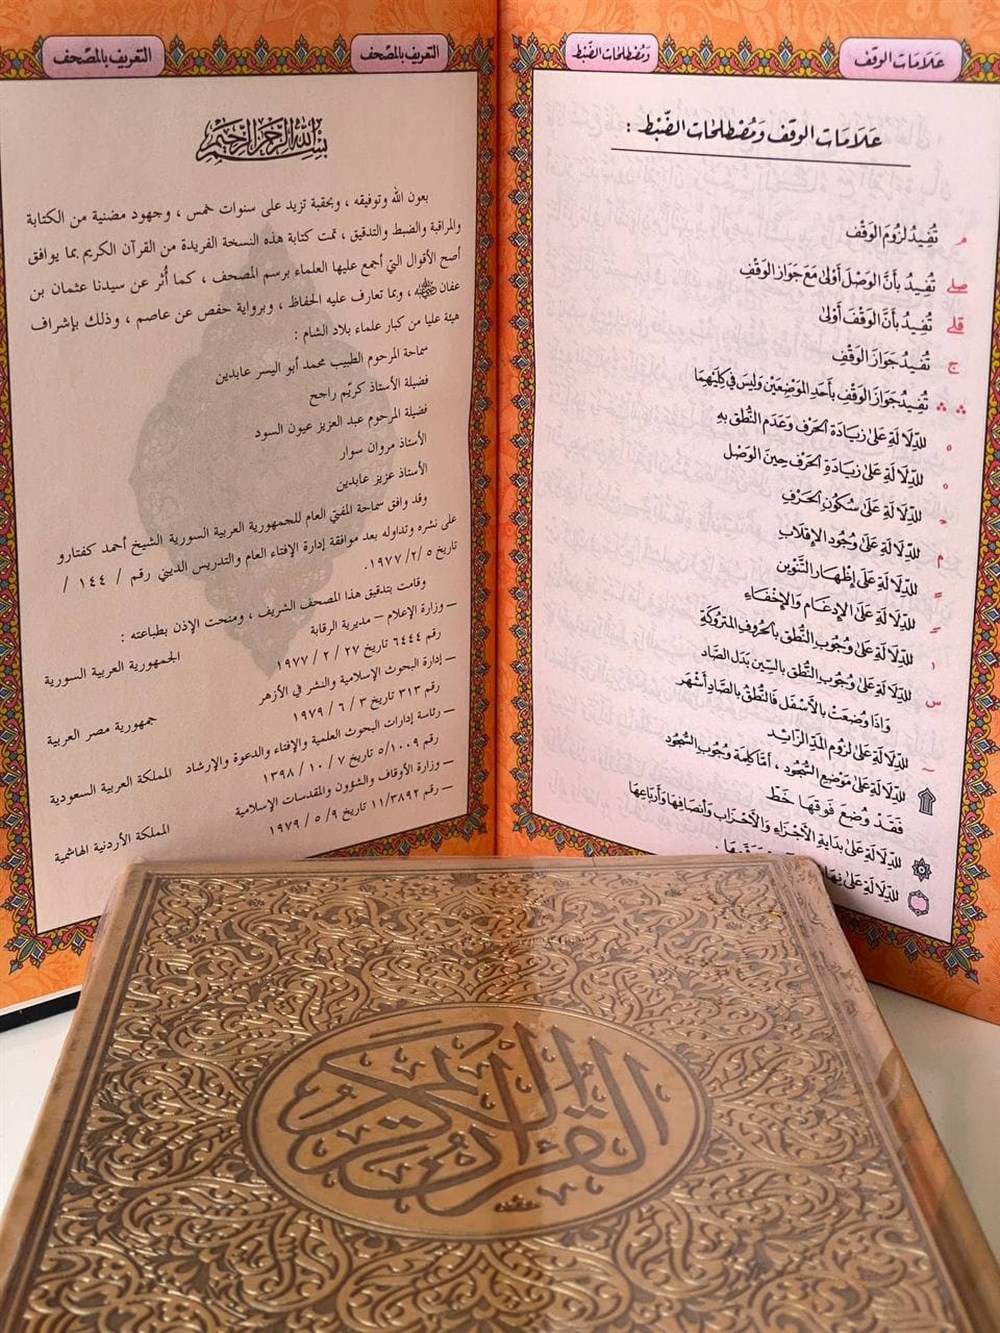 علامات الوقف
ومصطلحات الضبط
عَلَامَات الوَقف وَمُصْطلحَات الضَّبْط :
مـ تُفِيدُ لزُومَ الوَقْف
صلے تُفِيدُ بأنَّ الوَصْلَ أَوْلىٰ مَعَ جَوَاز الوَقْفِ
قلے تُفِيدُ بأنَّ الوَقْفَ أَوْلىٰ
ج تُفِيدُ جَوَازَ الوَقْفِ
∴ ∴ تُفِيدُ جَوَازَ الوَقْفِ بأَحَدِ المَوْضِعَيْن وَلَيْسَ في كِلَيْهِمَا
للدِّلَالَةِ عَلىٰ زيَادَة الحَرْف وَعَدَم النُّطق بهِ
للدِّلَالَةِ عَلىٰ زيَادَةِ الحَرْف حِينَ الوَصْل
للدِّلَالَةِ عَلىٰ سُكُونِ الحَرْفِ
م للدِّلَالَةِ عَلىٰ وُجُودِ الإقْلَاب
للدِّلَالَةِ عَلىٰ إظهَار التَّنْوين
للدِّلَالَةِ عَلىٰ الإدغَام وَالإخْفَاءِ
للدِّلَالَةِ عَلىٰ وُجُوب النُّطق بالحُرُوفِ المَتْرُوكَةِ
س للدِّلَالَةِ عَلىٰ وُجُوب النُّطق بالسِّين بَدَل الصَّاد
وَإذَا وُضِعَتْ بالأَسْفَل فَالنُّطقُ بالصَّادِ أَشْهَر
للدِّلَالَةِ عَلىٰ لزُوم المَدِّ الزَّائِد
للدِّلَالَةِ عَلىٰ مَوْضِع السُّجُود ، أمَّا كلِمَة وُجُوب السُّجُود
فَقَدْ وُضِعَ فَوقهَا خَط
للدِّلَالَةِ عَلىٰ بدَايَةِ الأَجْزَاء وَالأَحْزَاب وَأَنصَافِهَا وَأَربَاعِهَا
للدِّلَالَةِ عَلىٰ
التعريف بالمصحف
التعريف بالمصحف
بسم الله الرحمن الرحيم
بعون الله وتوفيقه ، وبحقبة تزيد على سنوات خمس ، وجهود مضنية من الكتابة
والمراقبة والضبط والتدقيق ، تمت كتابة هذه النسخة الفريدة من القرآن الكريم بما يوافق
أصح الأقوال التي أجمع عليها العلماء برسم المصحف ، كما أُثر عن سيدنا عثمان بن
عفان ﵁ ، وبما تعارف عليه الحفاظ ، وبرواية حفص عن عاصم ، وذلك بإشراف
هيئة عليا من كبار علماء بلاد الشام :
سماحة المرحوم الطبيب محمد أبو اليسر عابدين
فضيلة الأستاذ كريّم راجح
فضيلة المرحوم عبد العزيز عيون السود
الأستاذ مروان سوار
الأستاذ عزيز عابدين
وقد وافق سماحة المفتي العام للجمهورية العربية السورية الشيخ أحمد كفتارو
على نشره وتداوله بعد موافقة إدارة الإفتاء العام والتدريس الديني رقم / ١٤٤ /
تاريخ ٥ /٢/ ١٩٧٧ .
وقامت بتدقيق هذا المصحف الشريف ، ومنحت الإذن بطباعته :
ــ وزارة الإعلام ــ مديرية الرقابة الجمهورية العربية السورية
رقم ٦٤٤٤ تاريخ ٢٧ / ٢ / ١٩٧٧
ــ إدارة البحوث الإسلامية والنشر في الأزهر جمهورية مصر العربية
رقم ٣١٣ تاريخ ٣ / ٦ / ١٩٧٩
ــ رئاسة إدارات البحوث العلمية والإفتاء والدعوة والإرشاد المملكة العربية السعودية
رقم ٥/١٠٠٩ تاريخ ٧ / ١٠ / ١٣٩٨
ــ وزارة الأوقاف والشؤون والمقدسات الإسلامية المملكة الأردنية الهاشمية
ــ رقم ١١/٣٨٩٢ تاريخ ٩ / ٥ / ١٩٧٩
القرآن الكريم